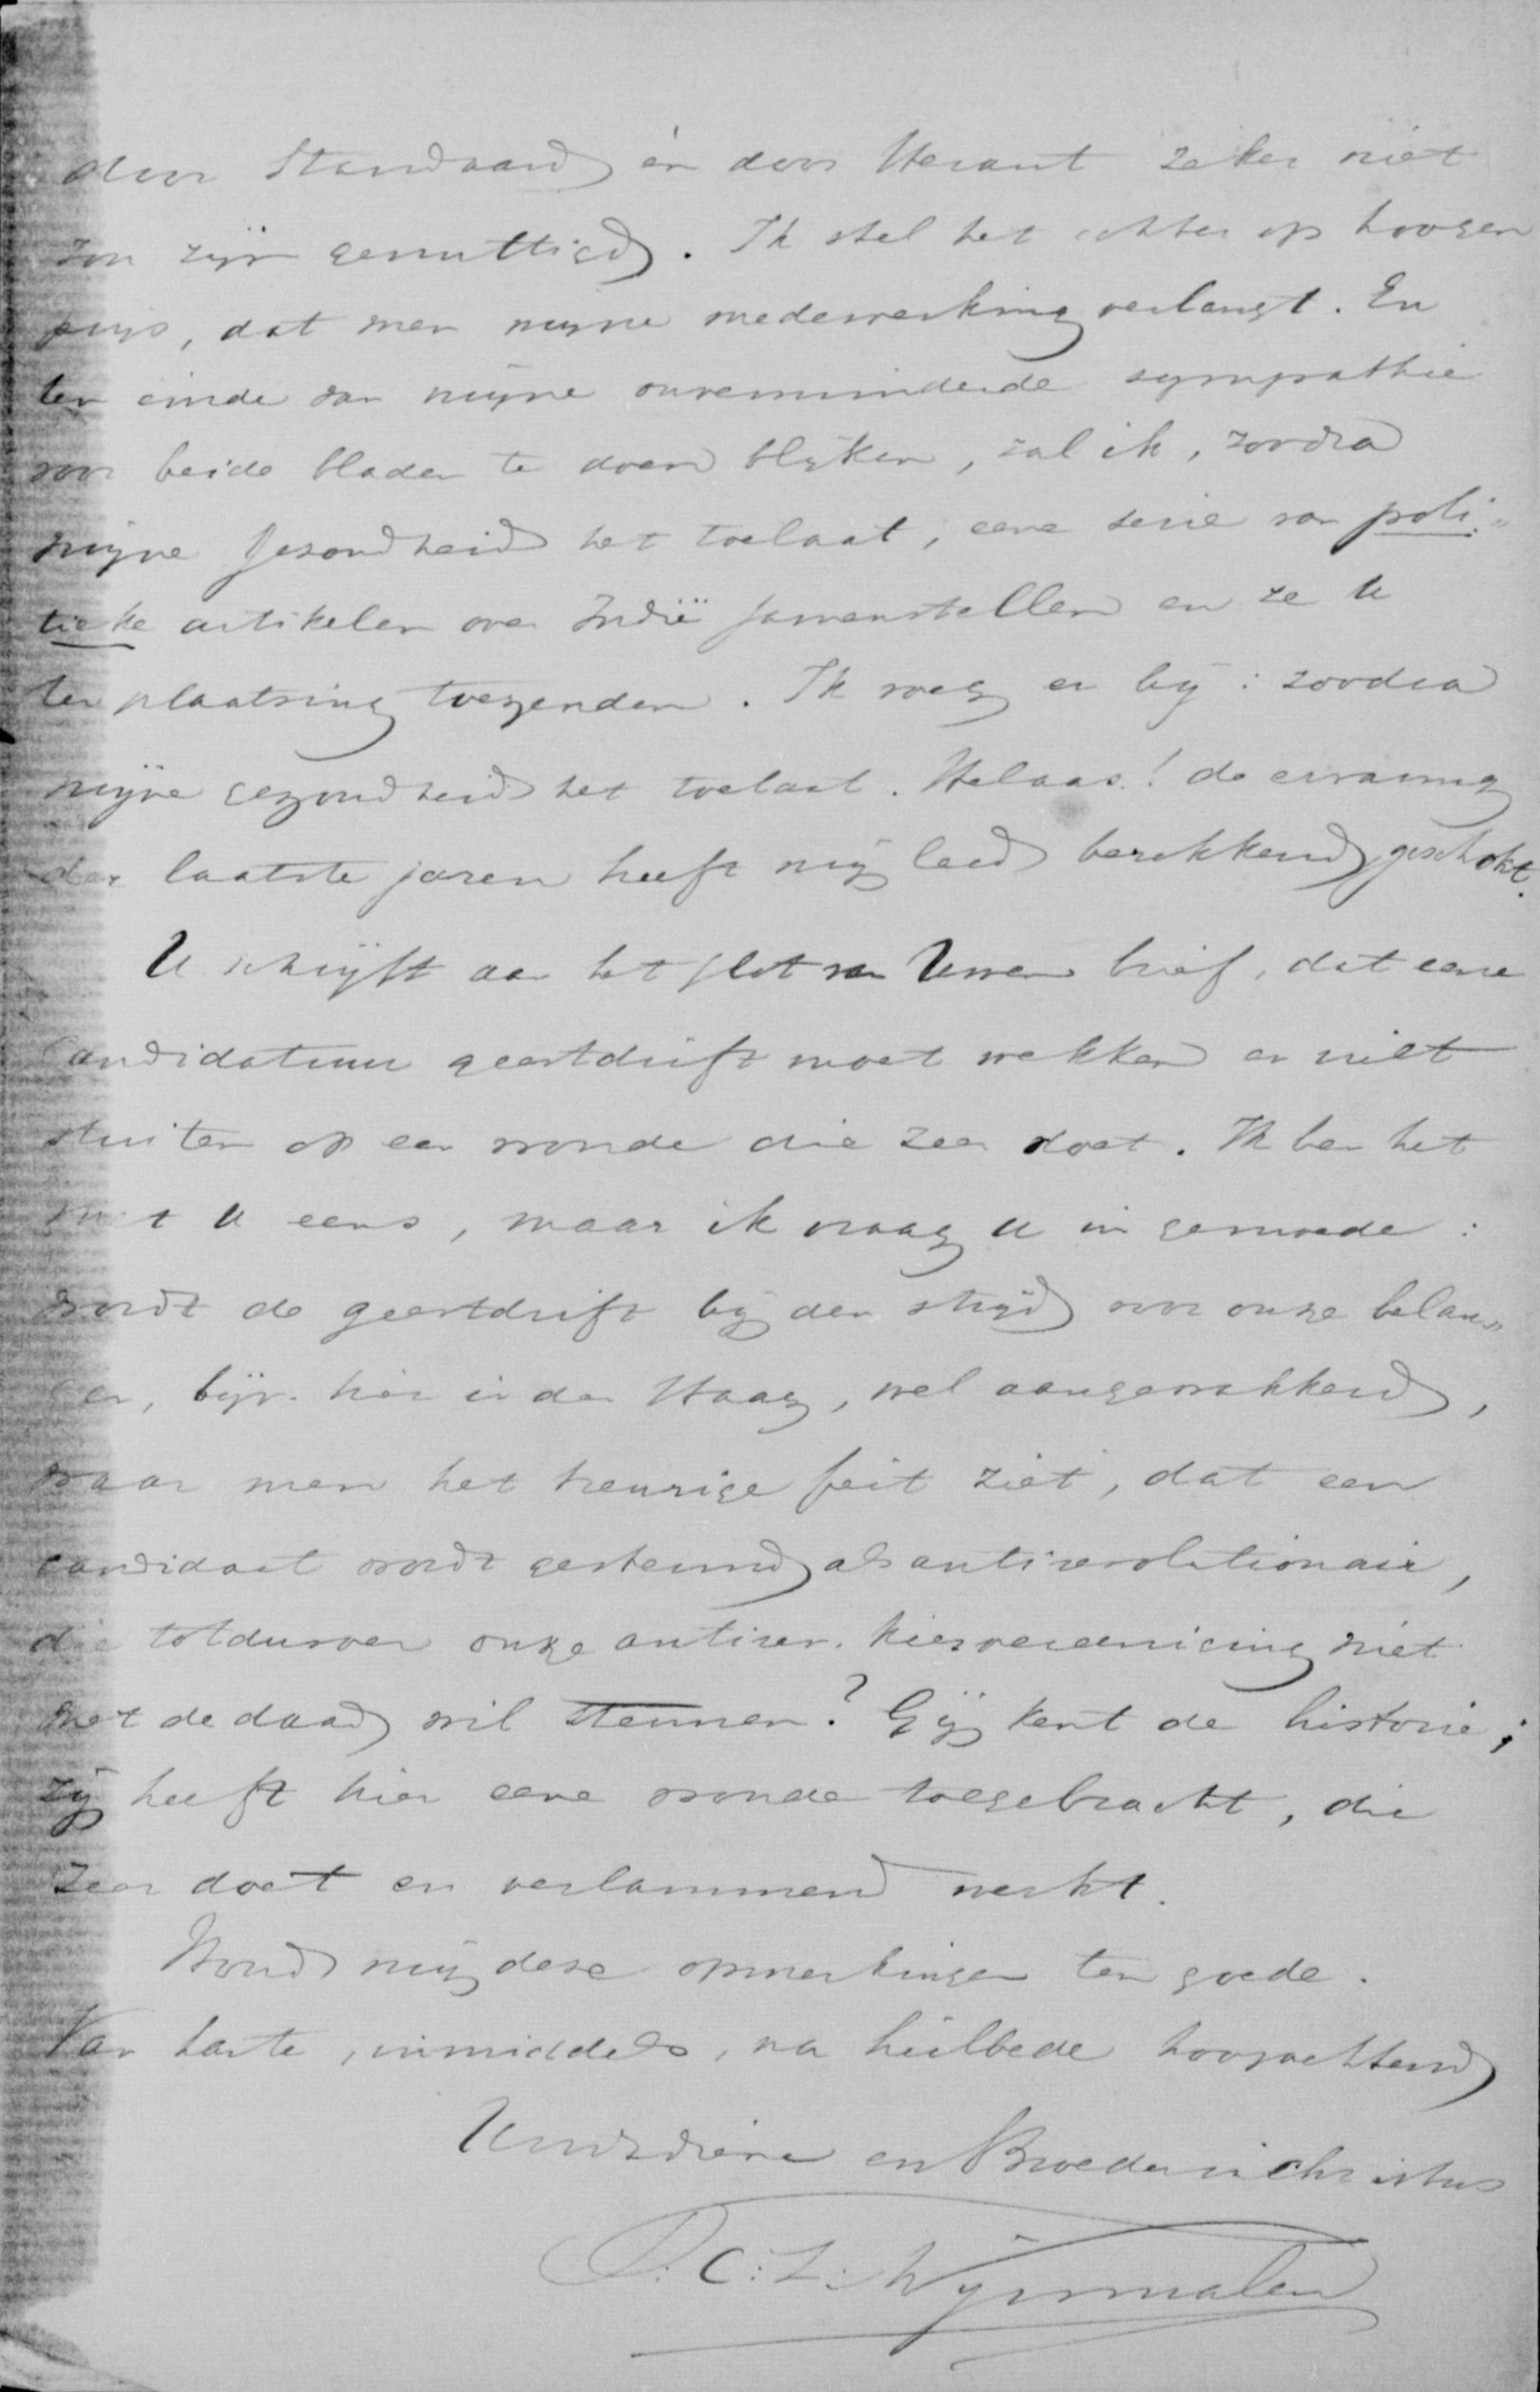 door Standaard èn door Heraut zeker niet
zou zijn genuttigd. Ik stel het echter op hoogen
prijs, dat men mijne medewerking verlangt. En
ten einde van mijne onverminderde sympathie
voor beide bladen te doen blijken, zal ik, zoodra
mijne gezondheid het toelaat, eene serie van poli-
tieke artikelen over Indië samenstellen en ze U
ter plaatsing toezenden. Ik voeg er bij: zoodra
mijne gezondheid het toelaat. Helaas! de ervaring
der laatste jaren heeft mij leed berokkend, geschokt.
U schrijft aan het slot van Uwen brief, dat eene
Candidatuur geestdrift moet wekken en niet
stuiten op een wonde die zeer doet. Ik ben het
met U eens, maar ik vraag U in gemoede:
wordt de geestdrift bij den strijd voor onze belan-
gen, bijv. hier in den Haag, wel aangewakkerd,
waar men het treurige feit ziet, dat een
candidaat wordt gesteund als antirevolutionair,
die totdusver onze antirev. kiesvereeniging niet
met de daad wil steunen? Gij kent de historie;
zij heeft hier eene wonde toegebracht, die
zeer doet en verlammend werkt.
Houd mij deze opmerkingen ten goede.
Van harte, inmiddels, na heilbede hoogachtend
Uwdzdiena en Broeder in Christus
T.C.L. Wijnmalen